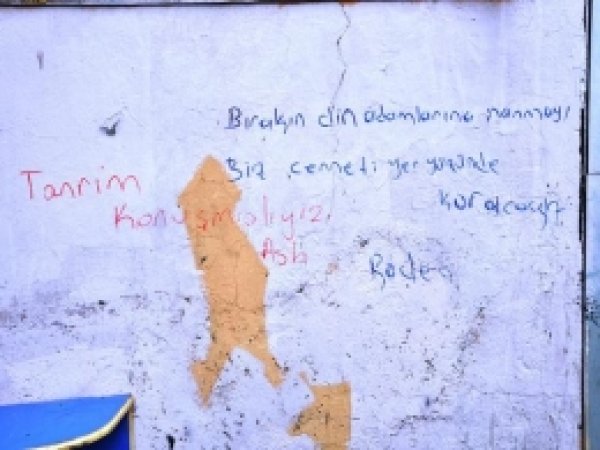 Bırakın din adamlarına inanmayı
Biz cenneti yeryüzünde
kuracağız
Tanrım
Konuşmalıyız
Aslı